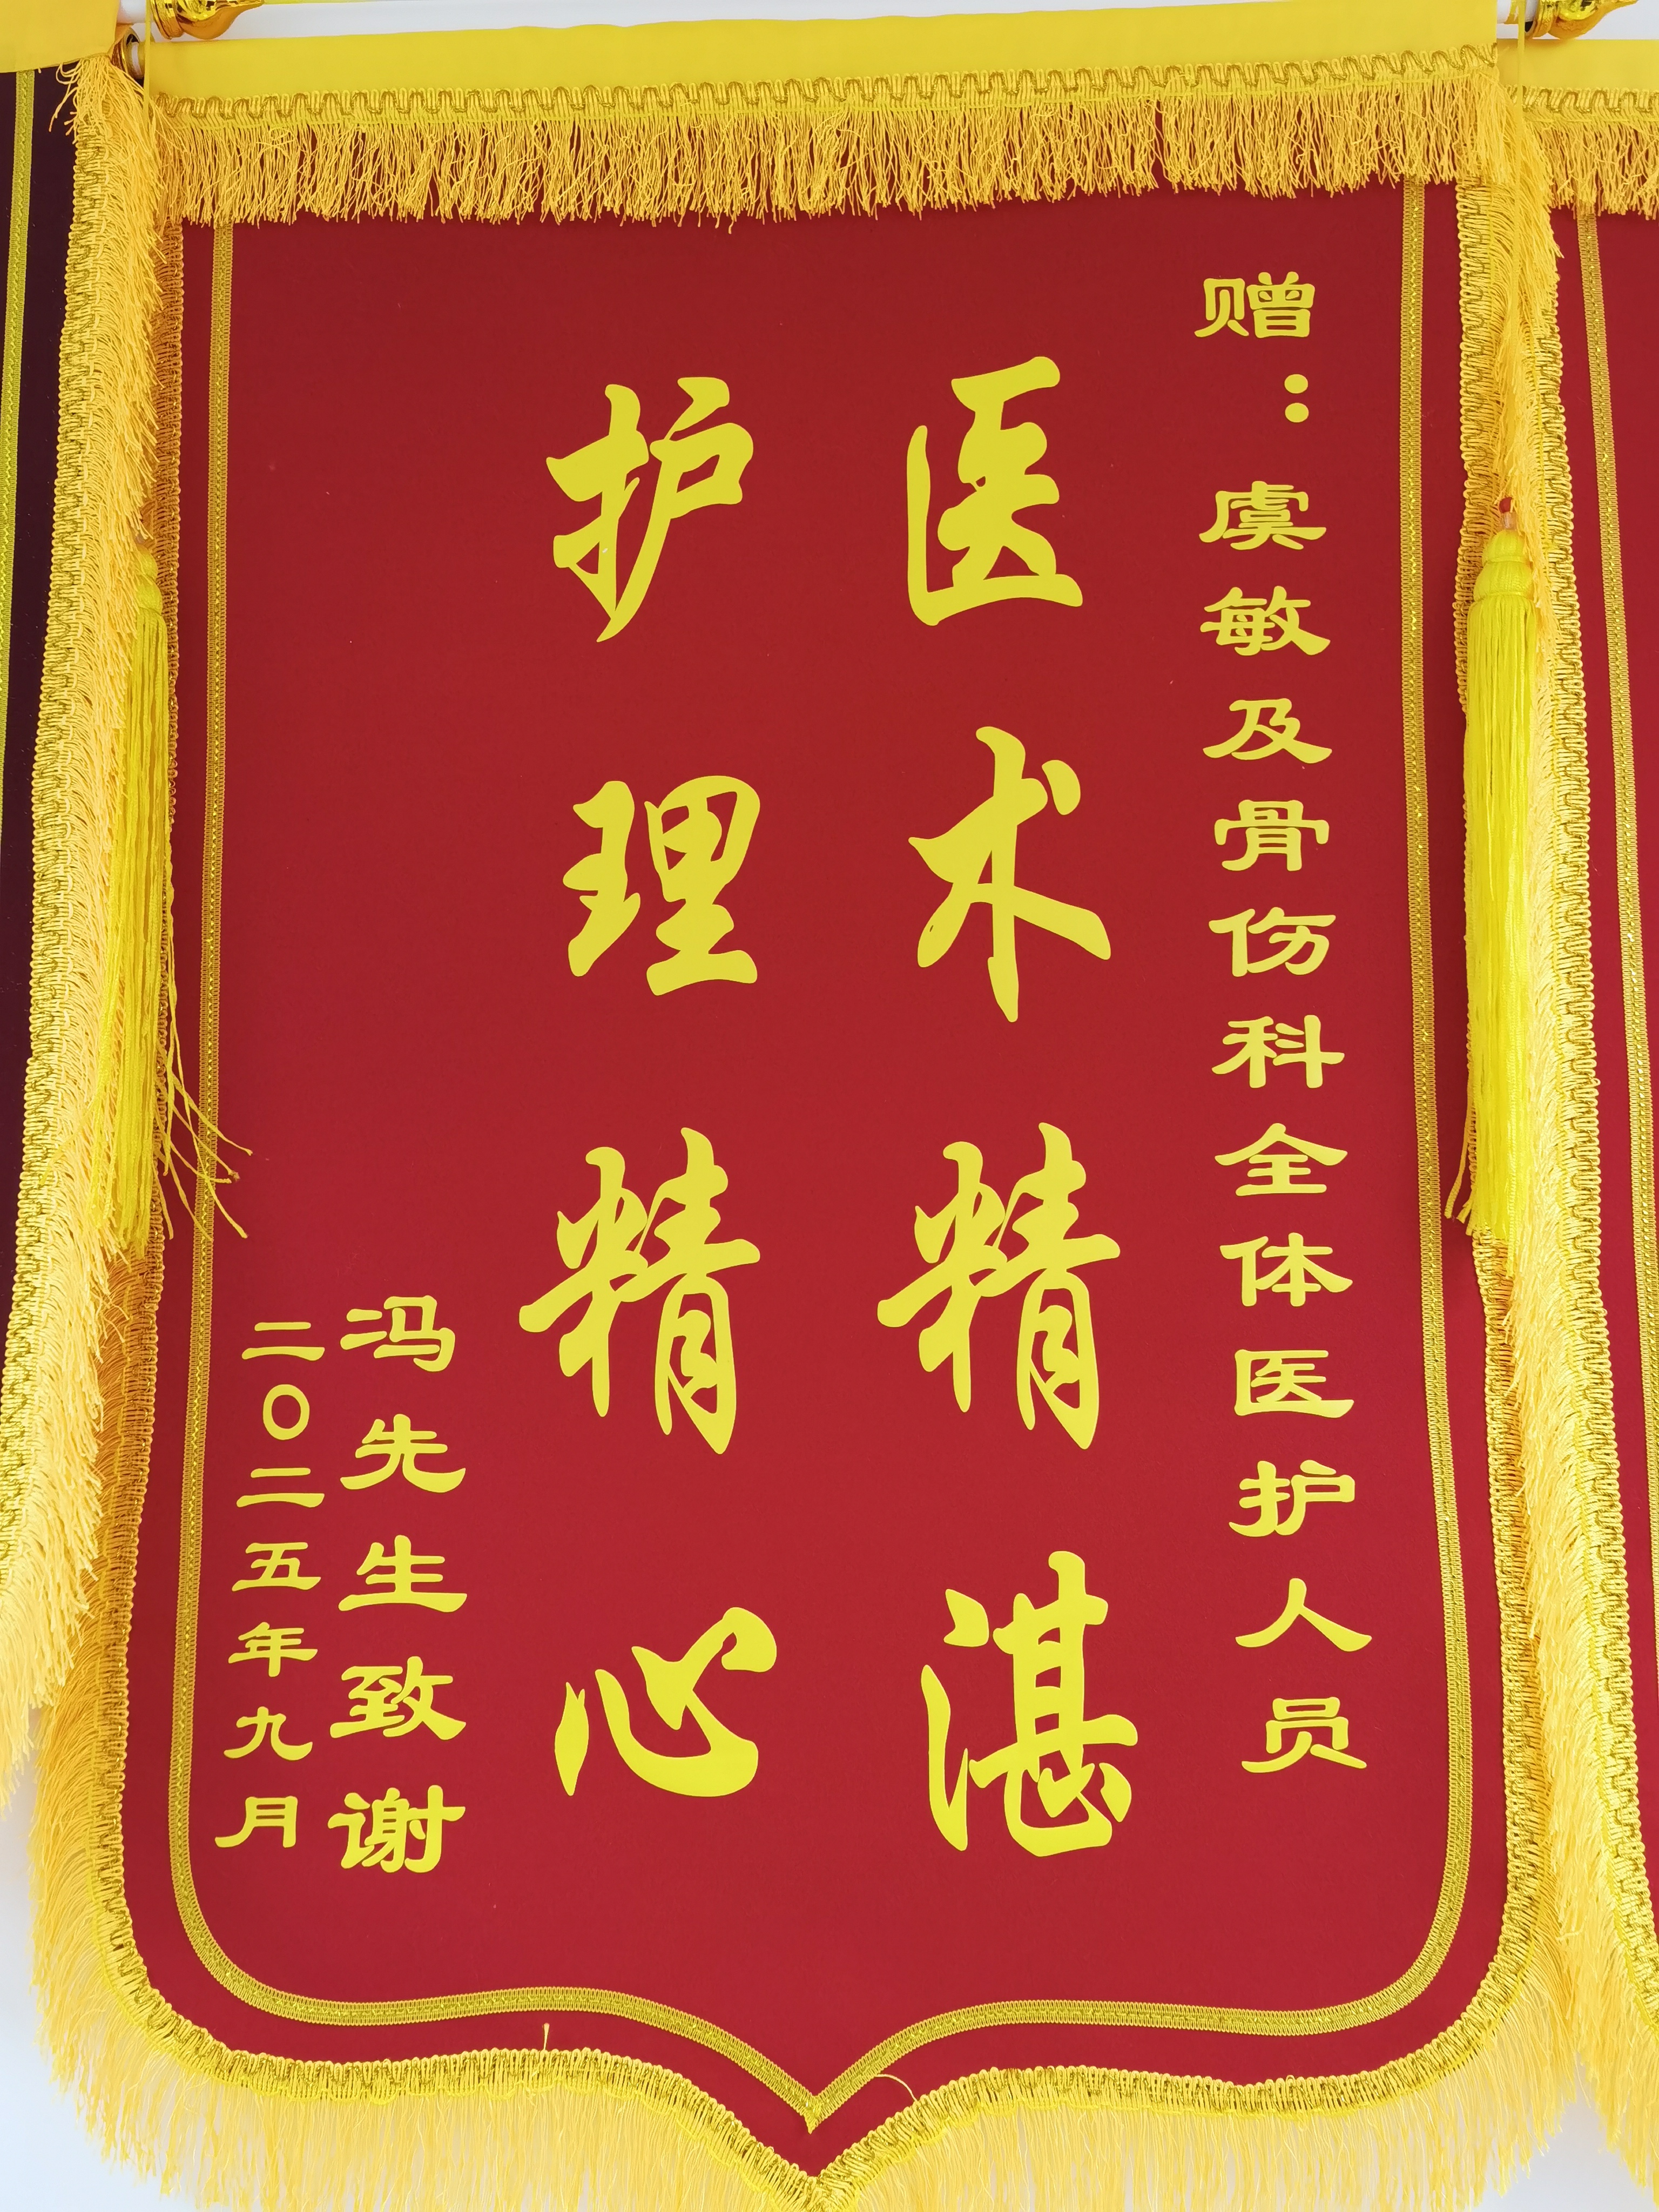 赠：虞敏及骨伤科全体医护人员
医术精湛
护理精心
冯先生致谢
二〇二五年九月